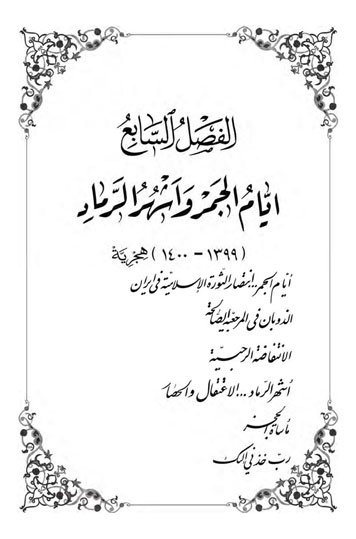 الفصل السابع
ايام الجمر وأشهر الرماد
(١٣٩٩ - ١٤٠٠) هجرية
أيام الجمر..انتصار الثورة الإسلامية في ايران
الذوبان في المرجعية الصالحة
الانتفاضة الرجبية
أشهر الرماد...الاعتقال والحصار
مأساة الحجز
ربّ خذني اليك